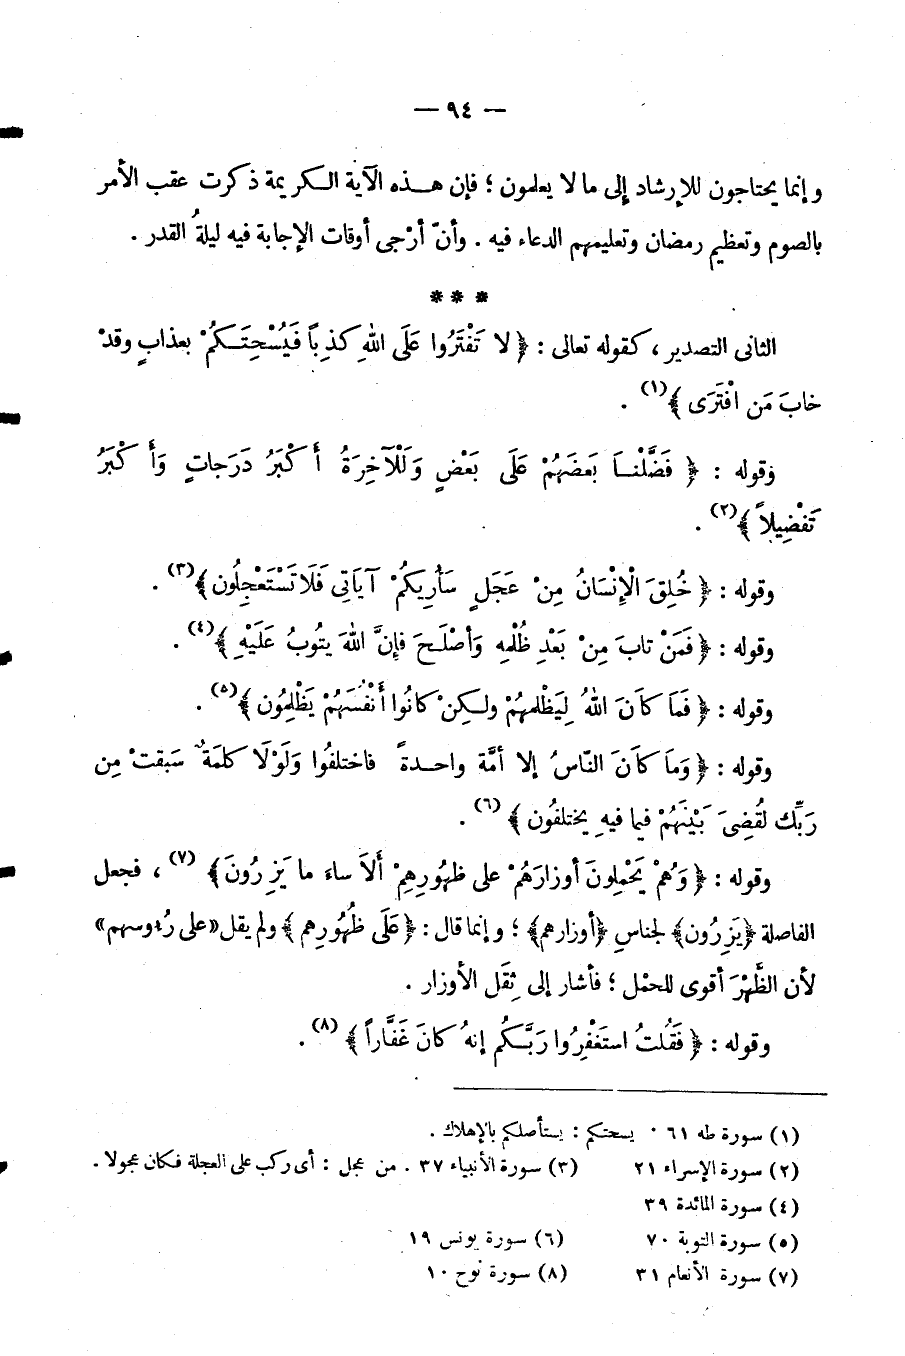 — ٩٤ —
وإنما يحتاجون للإرشاد إلى ما لا يعلمون ؛ فإن هـذه الآية الكريمة ذكرت عقب الأمر
بالصوم وتعظيم رمضان وتعليمهم الدعاء فيه . وأنّ أرْجى أوقات الإجابة فيه ليلةُ القدر .
* * *
الثانى التصدير ، كقوله تعالى : ﴿ لا تَفْتَرُوا عَلَى اللهِ كَذِباً فَيُسْحِتَكُمْ بعذابٍ وقدْ
خابَ مَن افْتَرَى ﴾(١) .
وقوله : ﴿ فَضَّلْنـا بَعضَهُمْ عَلَى بَعْضٍ وَلَلْآخِرَةُ أَكْبَرُ دَرَجاتٍ وَأَكْبَرُ
تَفْضِيلاً ﴾(٢) .
وقوله : ﴿ خُلِقَ الْإِنْسَانُ مِنْ عَجَلٍ سَأُرِيكُمْ آيَاتِى فَلَا تَسْتَعْجِلُون ﴾(٣) .
وقوله : ﴿ فَمَنْ تابَ مِنْ بَعْدِ ظُلْمِهِ وَأَصْلَـحَ فإِنَّ اللهَ يتُوبُ عَلَيْهِ ﴾(٤) .
وقوله : ﴿ فَمَا كاَنَ اللهُ لِيَظْلمهُمْ ولـكِنْ كانُوا أَنْفُسَهُمْ يَظْلِمُون ﴾(٥) .
وقوله : ﴿ وَمَا كاَنَ النّاسُ إلا أمَّة واحـدةً فاختلفُوا وَلَوْلَا كلمَةٌ سَبقتْ مِن
رَبِّك لقُضِىَ بَيْنَهُمْ فيما فيهِ يختلفُون ﴾(٦) .
وقوله : ﴿ وَهُمْ يَحْمِلونَ أوزارَهُمْ على ظهُورِهِمْ أَلَا ساءَ ما يَزِرُونَ ﴾(٧) ، فجعل
الفاصلة ﴿يَزِرُون﴾ لجناسِ ﴿أوزارهم﴾ ؛ وإنما قال : ﴿عَلَى ظُهُورِهم﴾ ولم يقل «على رُءوسهم»
لأن الظَّهْرَ أقوى للحمْل ؛ فأشار إلى ثِقَل الأوزار .
وقوله : ﴿ فَقُلتُ استَغْفِرُوا رَبَّـكُم إنهُ كانَ غَفَّاراً ﴾(٨) .
(١) سورة طه ٦١ . يسحتكم : يستأصلكم بالإهلاك .
(٢) سورة الإسراء ٢١ (٣) سورة الأنبياء ٣٧ . من عجل : أى ركب على العجلة فكان عجولا .
(٤) سورة المائدة ٣٩
(٥) سورة التوبة ٧٠ (٦) سورة يونس ١٩
(٧) سورة الأنعام ٣١ (٨) سورة نوح ١٠